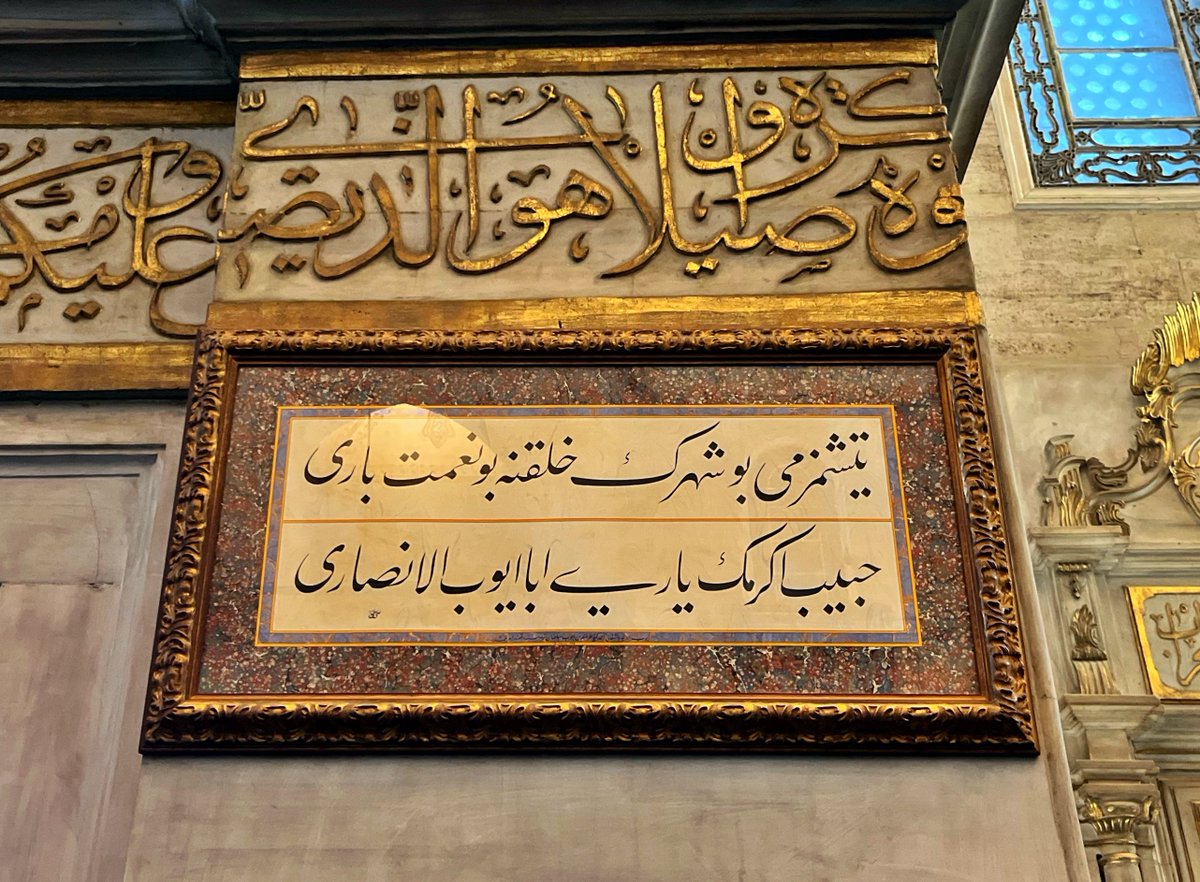 بكرة واصيلا هو الذى يصلى عليكم
يتشمزمى بو شهرك خلقنه بو نعمت بارى
حبيب اكرمك يارى ابا ايوب الانصارى